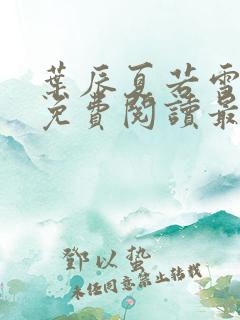 葉辰夏若雪
免費閱讀最
鄧以蟄
未经同意禁止转载